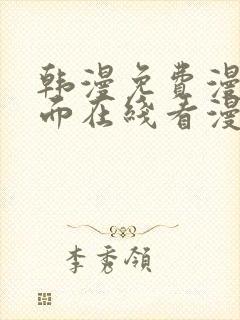 韩漫免费漫
而在线看漫
李秀领